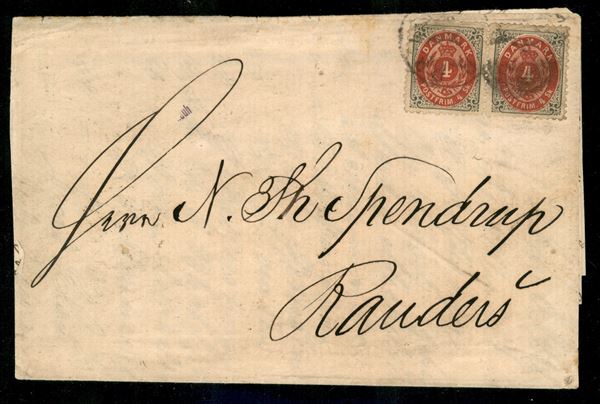 DANMARK
4
POSTFRIM. 4 SK.
DANMARK
4
POSTFRIM. 4 SK.
Herrn N. Th Spendrup
Randers